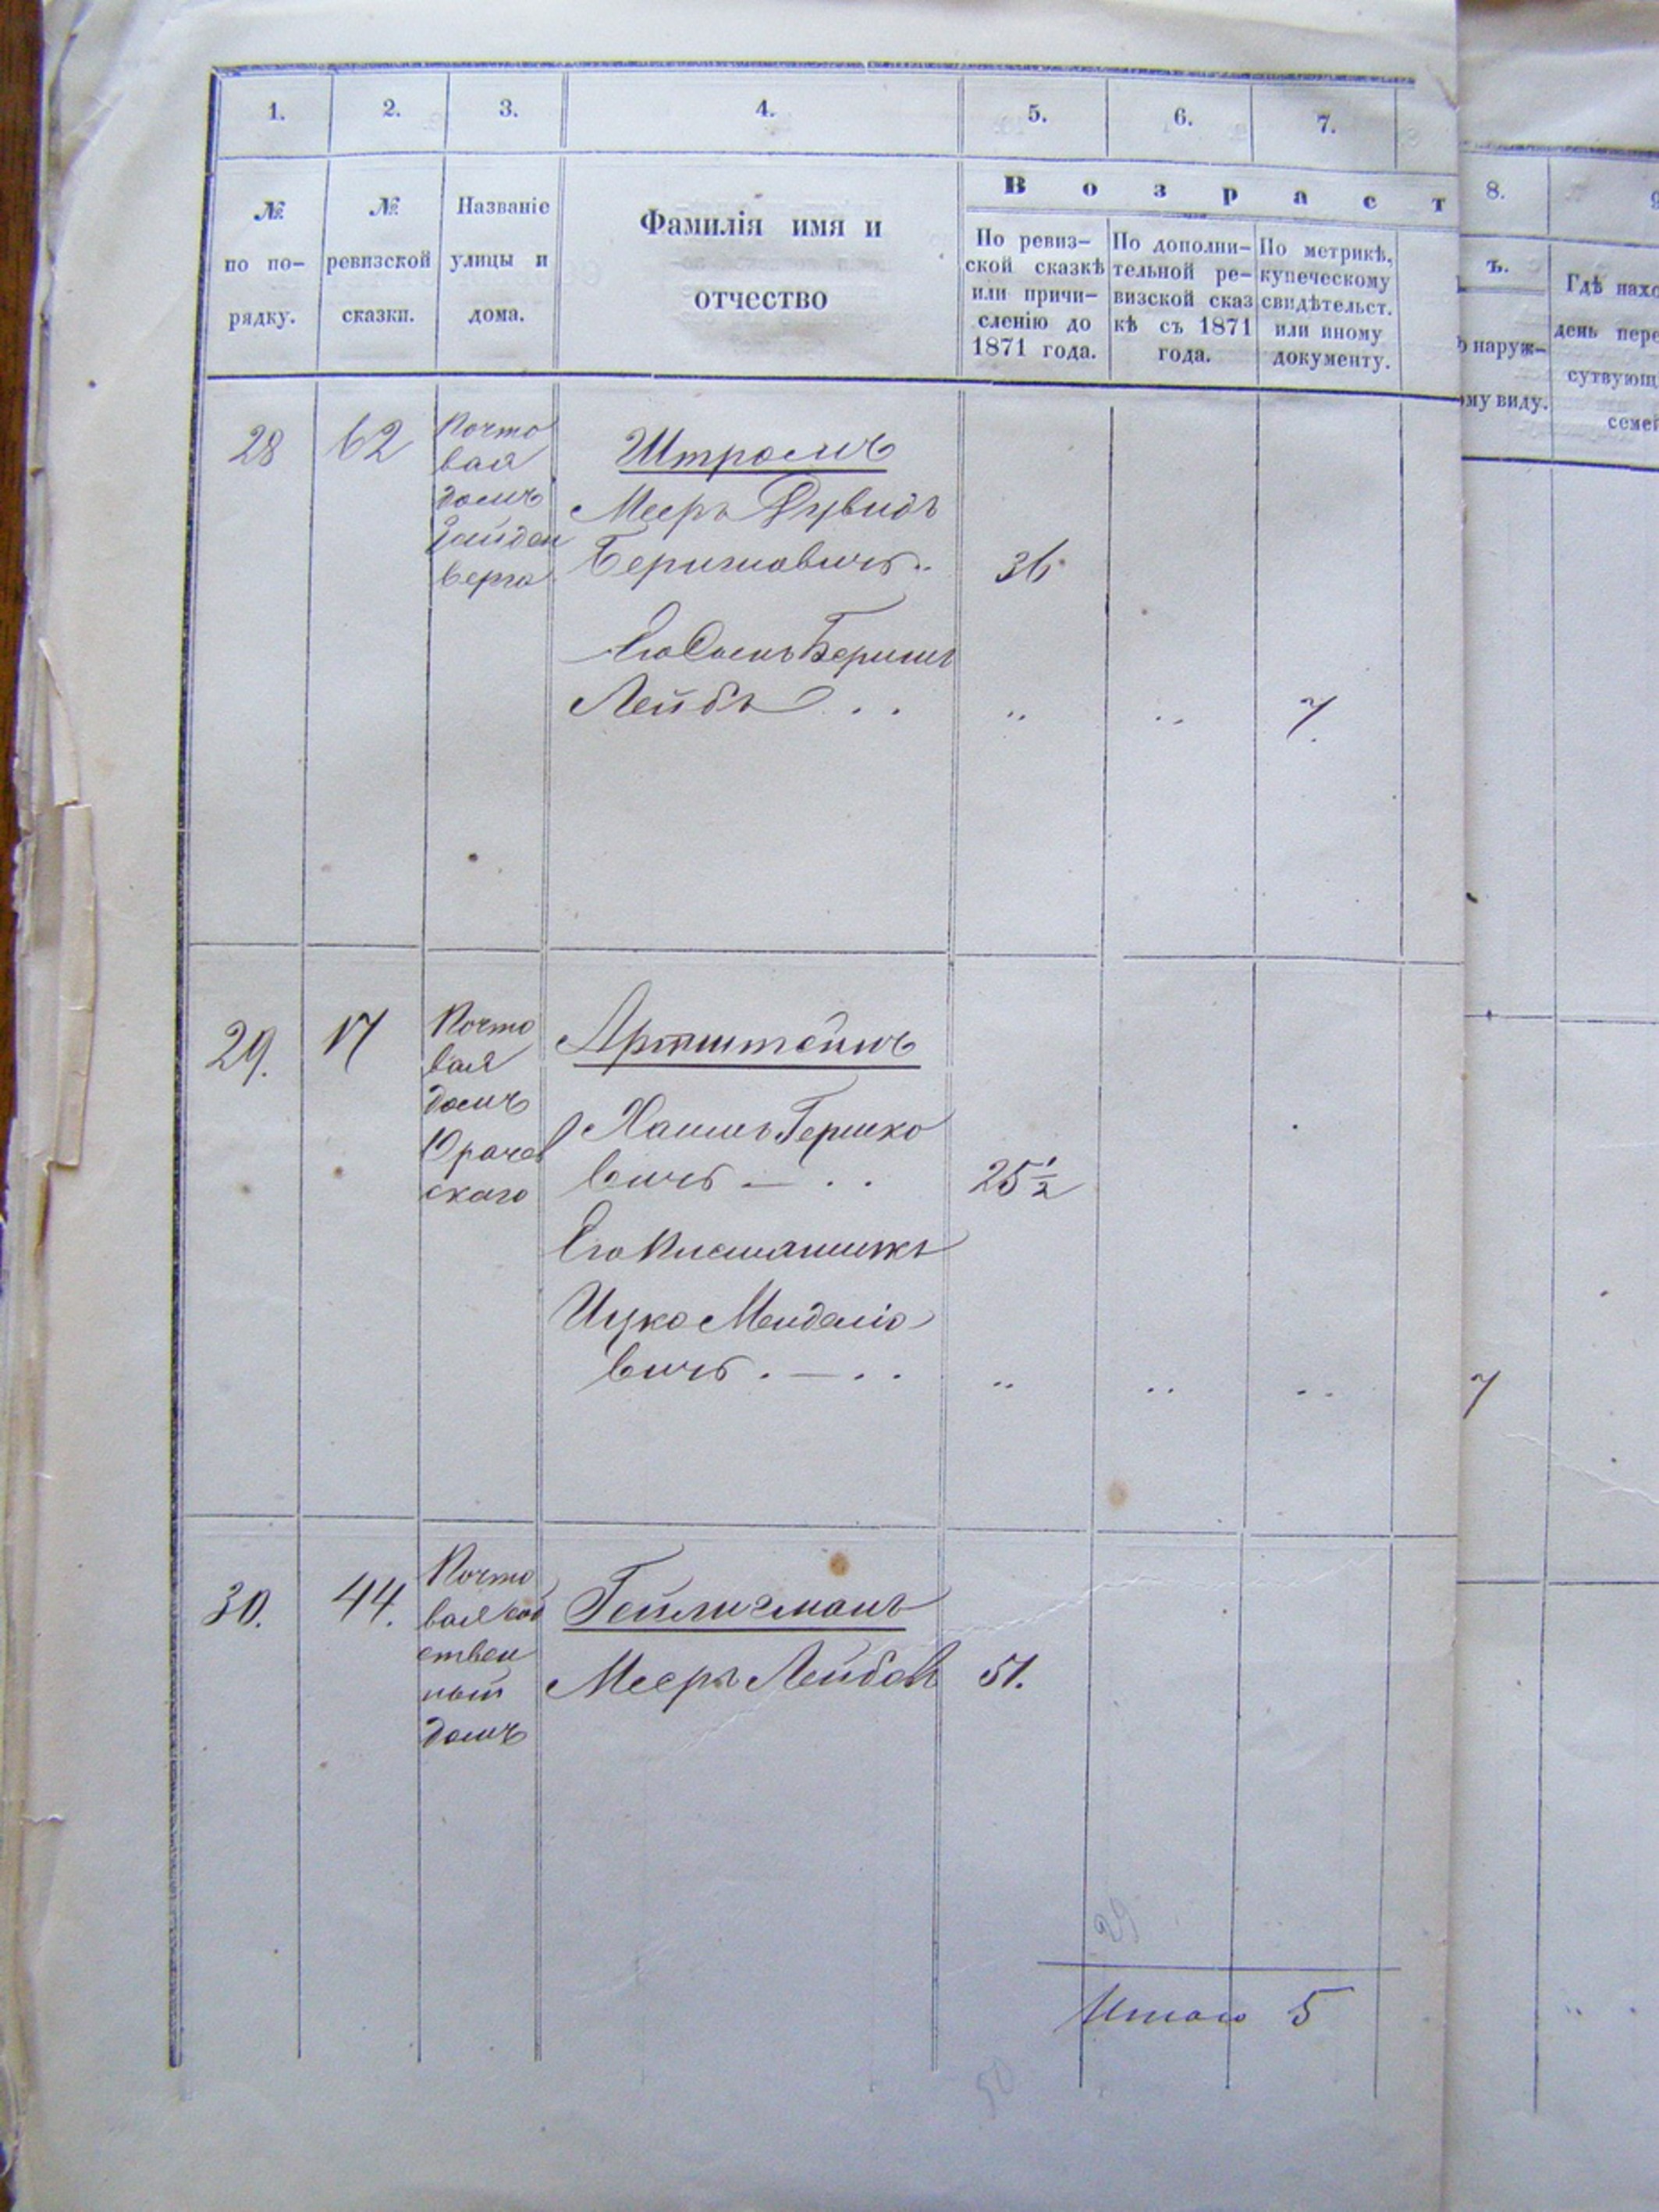 1.
2.
3.
4.
5.
6.
7.
8.
№ по по-
рядку.
№ ревизской
сказки.
Названіе
улицы и
дома.
Фамилія имя и
отчество
Возраст
ъ.
По ревиз-
ской сказкѣ
или причи-
сленію до
1871 года.
По дополни-
тельной ре-
визской сказ
кѣ съ 1871
года.
По метрикѣ,
купеческому
свидѣтельст.
или иному
документу.
наруж-
ому виду.
Гдѣ нахо
день пере
сутвующ
семей
28
62
Почто
вая
домъ
Зайден
берга
Штромъ
Мееръ Дувидъ
Беришовичъ..
36
Его Сынъ Беришъ
Лейба . .
"
"
7.
29.
17
Почто
вая
домъ
Юрачев
скаго
Артштейнъ
Хаимъ Гершко
вичъ — . .
25 1/2
Его Племянникъ
Ицко Менделіо
вичъ . — . .
"
"
"
7
30.
44.
Почто
вая соб
ствен
ный
домъ
Гейлигманъ
Мееръ Лейбов
51.
29
Итого 5
50